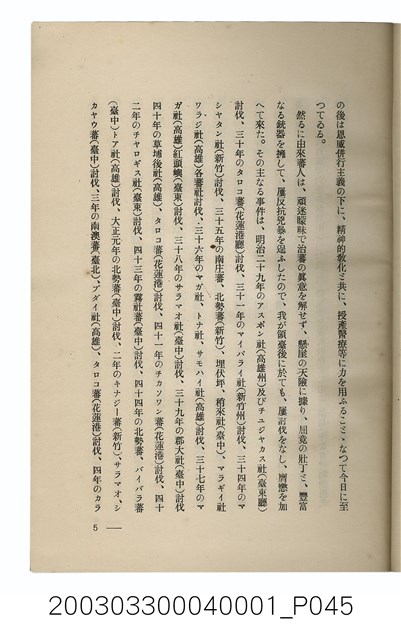 の後は恩威併行主義の下に、精神的敎化と共に、授產醫療等に力を用ふることゝなつて今日に至
つてゐる。
然るに由來蕃人は、頑迷矇昧で治蕃の眞意を解せず、懸崖の天險に據り、屈竟の壯丁と、豐富
なる銃器を擁して、屢反抗兇暴を逞ふしたので、我が領臺後に於ても、屢討伐をなし、膺懲を加
へて來た。その主なる事件は、明治二十九年のアスボン社(高雄州)及びチユジヤカス社(臺東廳)
討伐、三十年のタロコ蕃(花蓮港廳)討伐、三十一年のマイバライ社(新竹州)討伐、三十四年のマ
シヤタン社(新竹)討伐、三十五年の南庄蕃、北勢蕃(新竹)、埋伏坪、稍來社(臺中)、マラギイ社
ワラジ社(高雄)各蕃社討伐、三十六年のマガ社、トナ社、サモハイ社(高雄)討伐、三十七年のマ
ガ社(高雄)紅頭嶼(臺東)討伐、三十八年のサラマオ社(臺中)討伐、三十九年の郡大社(臺中)討伐
四十年の草埔後社(高雄)、タロコ蕃(花蓮港)討伐、四十一年のチカソワン蕃(花蓮港)討伐、四十
二年のチヤロギス社(臺東)討伐、四十三年の霧社蕃(臺中)討伐、四十四年の北勢蕃、バイバラ蕃
(臺中)トア社(高雄)討伐、大正元年の北勢蕃(臺中)討伐、二年のキナジー蕃(新竹)、サラマオ、シ
カヤウ蕃(臺中)討伐、三年の南澳蕃(臺北)、ブダイ社(高雄)、タロコ蕃(花蓮港)討伐、四年のカラ
5
200303300040001_P045